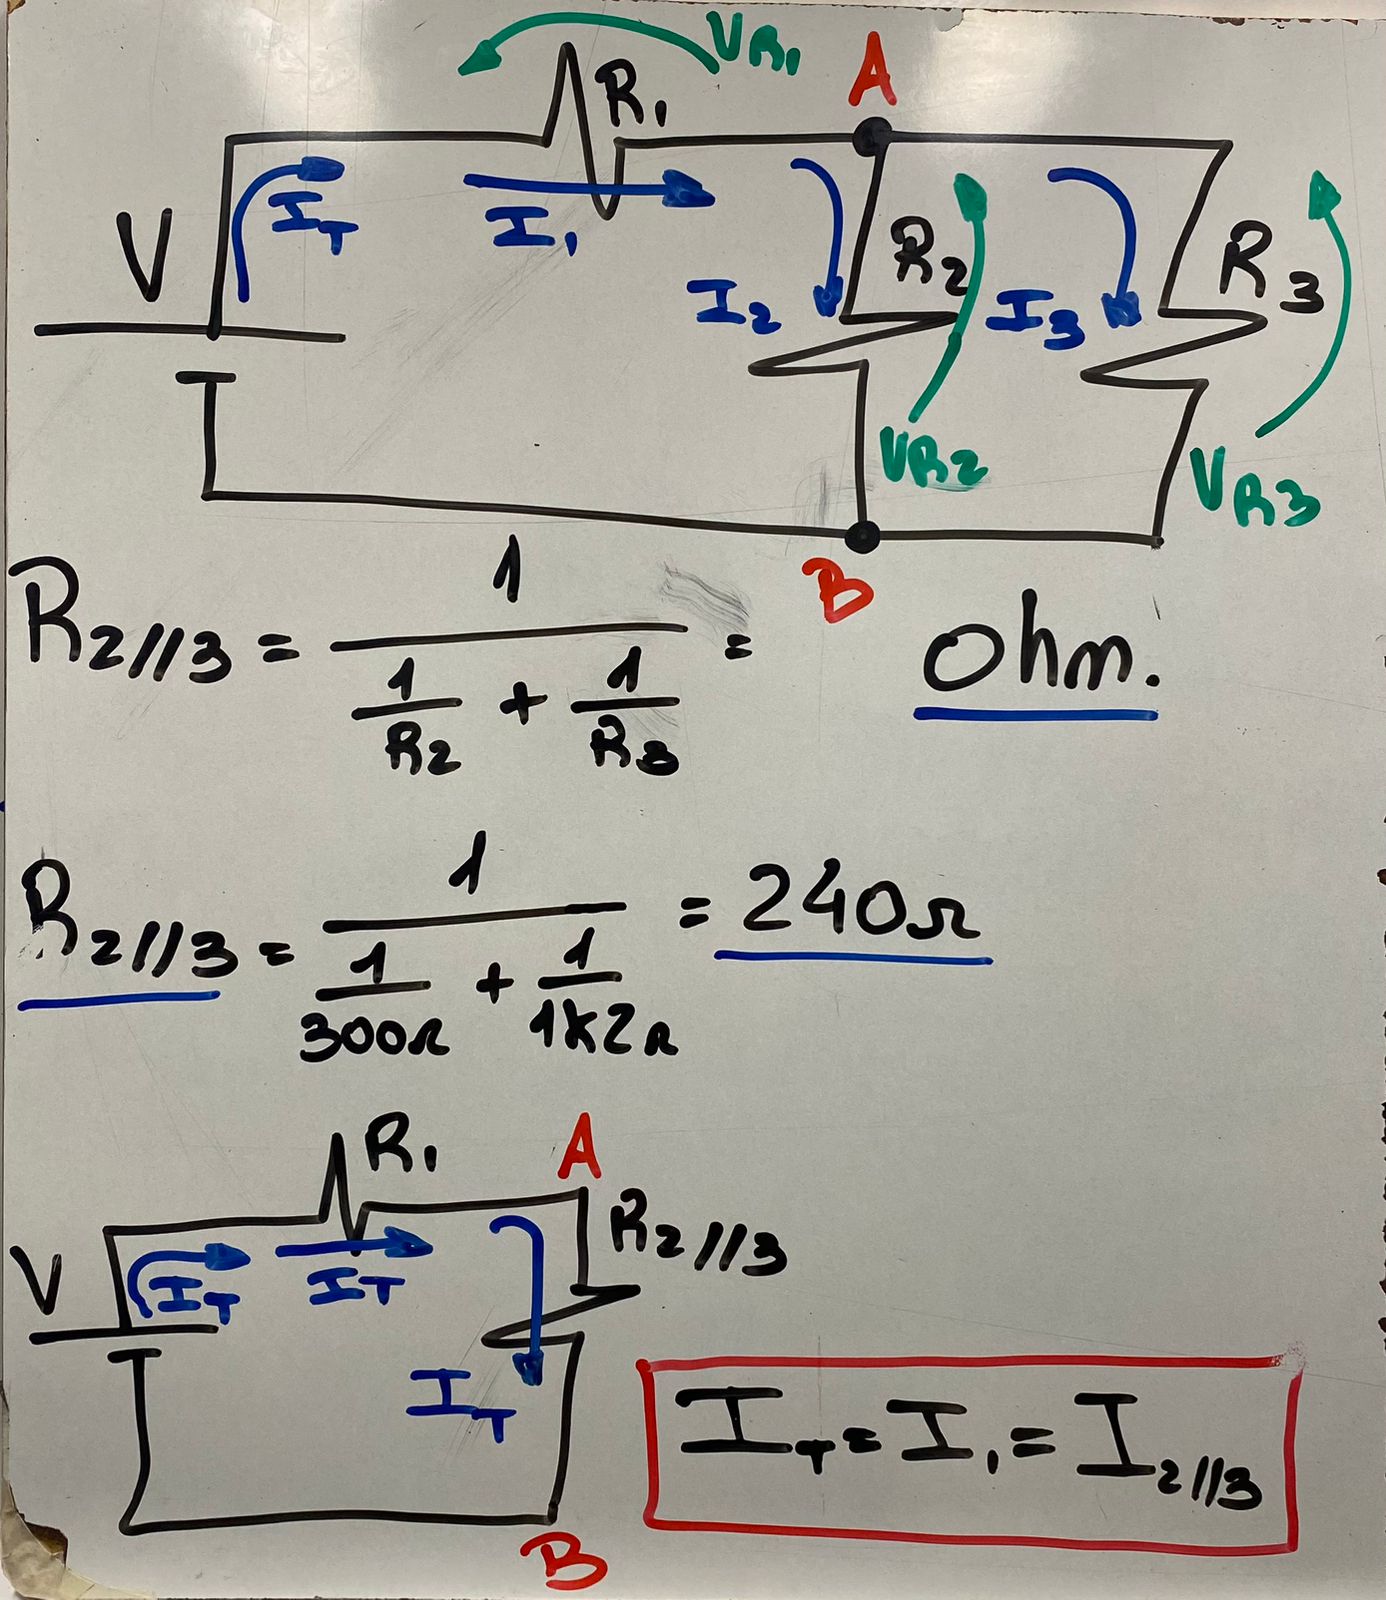 VR₁ A
R₁
V I_T I₁ R₂ R₃
I₂ I₃
VR₂ VR3
B
R₂//₃ = 1 / (1/R₂ + 1/R₃) = Ohm.
R₂//₃ = 1 / (1/300Ω + 1/1k2Ω) = 240Ω
R₁ A
R₂//₃
V I_T I_T
I_T
I_T = I₁ = I₂//₃
B